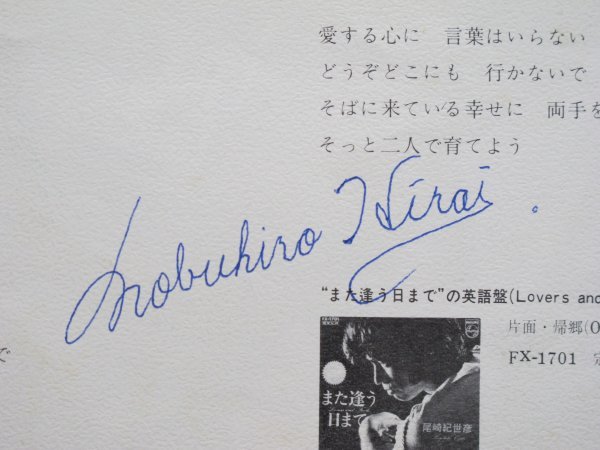 愛する心に 言葉はいらない
どうぞどこにも 行かないで
そばに来ている幸せに 両手を
そっと二人で育てよう
Nobuhiro Hirai
で
"また逢う日まで"の英語盤(Lovers and
片面・帰郷(O
FX-1701
また逢う
日まで
尾崎紀世彦